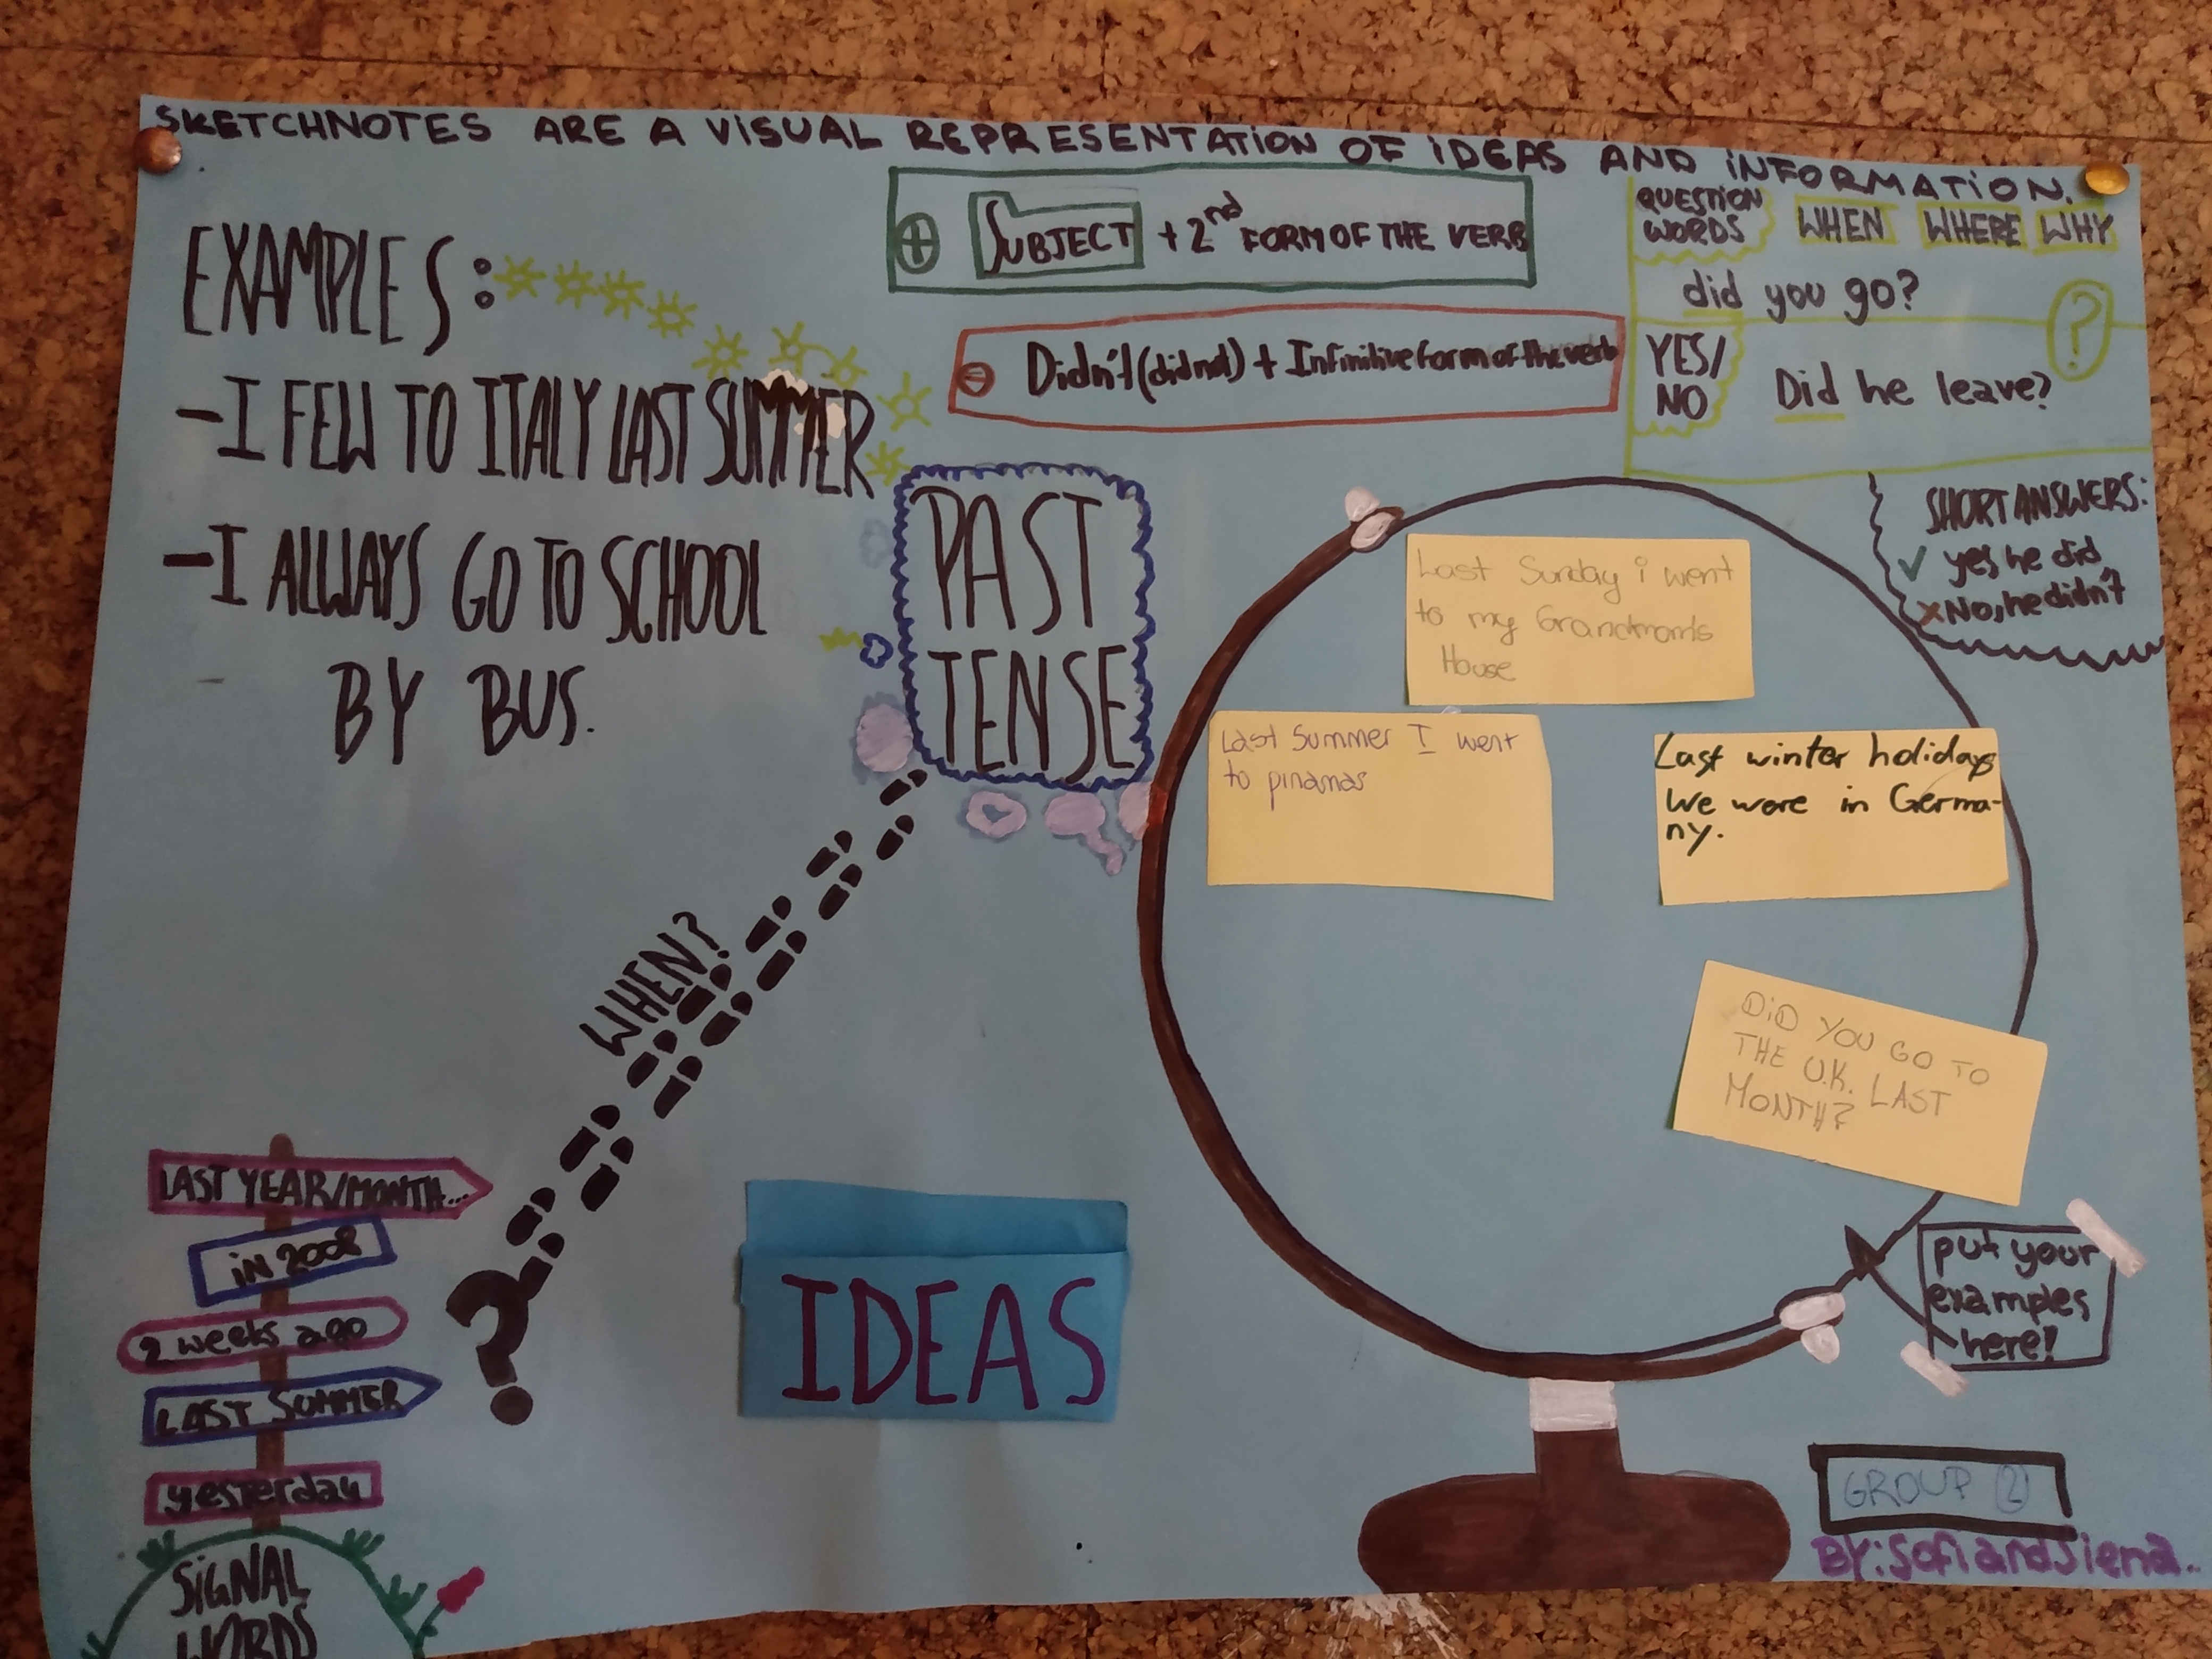 SKETCHNOTES ARE A VISUAL REPRESENTATION OF IDEAS AND INFORMATION.
EXAMPLES:
-I FEW TO ITALY LAST SUMMER
-I ALWAYS GO TO SCHOOL
BY BUS.
+ SUBJECT + 2nd FORM OF THE VERB
- Didn't (did not) + Infinitive form of the verb
QUESTION
WORDS
WHEN WHERE WHY
did you go?
YES/
NO
Did he leave?
?
SHORT ANSWERS:
✓ yes he did
x No, he didn't
PAST
TENSE
Last Sunday i went
to my Grandmom's
House
Last Summer I went
to pinamas
Last winter holidays
We were in Germa-
ny.
DID YOU GO TO
THE U.K. LAST
MONTH?
put your
examples
here!
WHEN?
?
LAST YEAR/MONTH...
in 2008
2 weeks ago
LAST SUMMER
yesterday
SIGNAL
WORDS
IDEAS
GROUP 2
BY: Sofi and Siena..